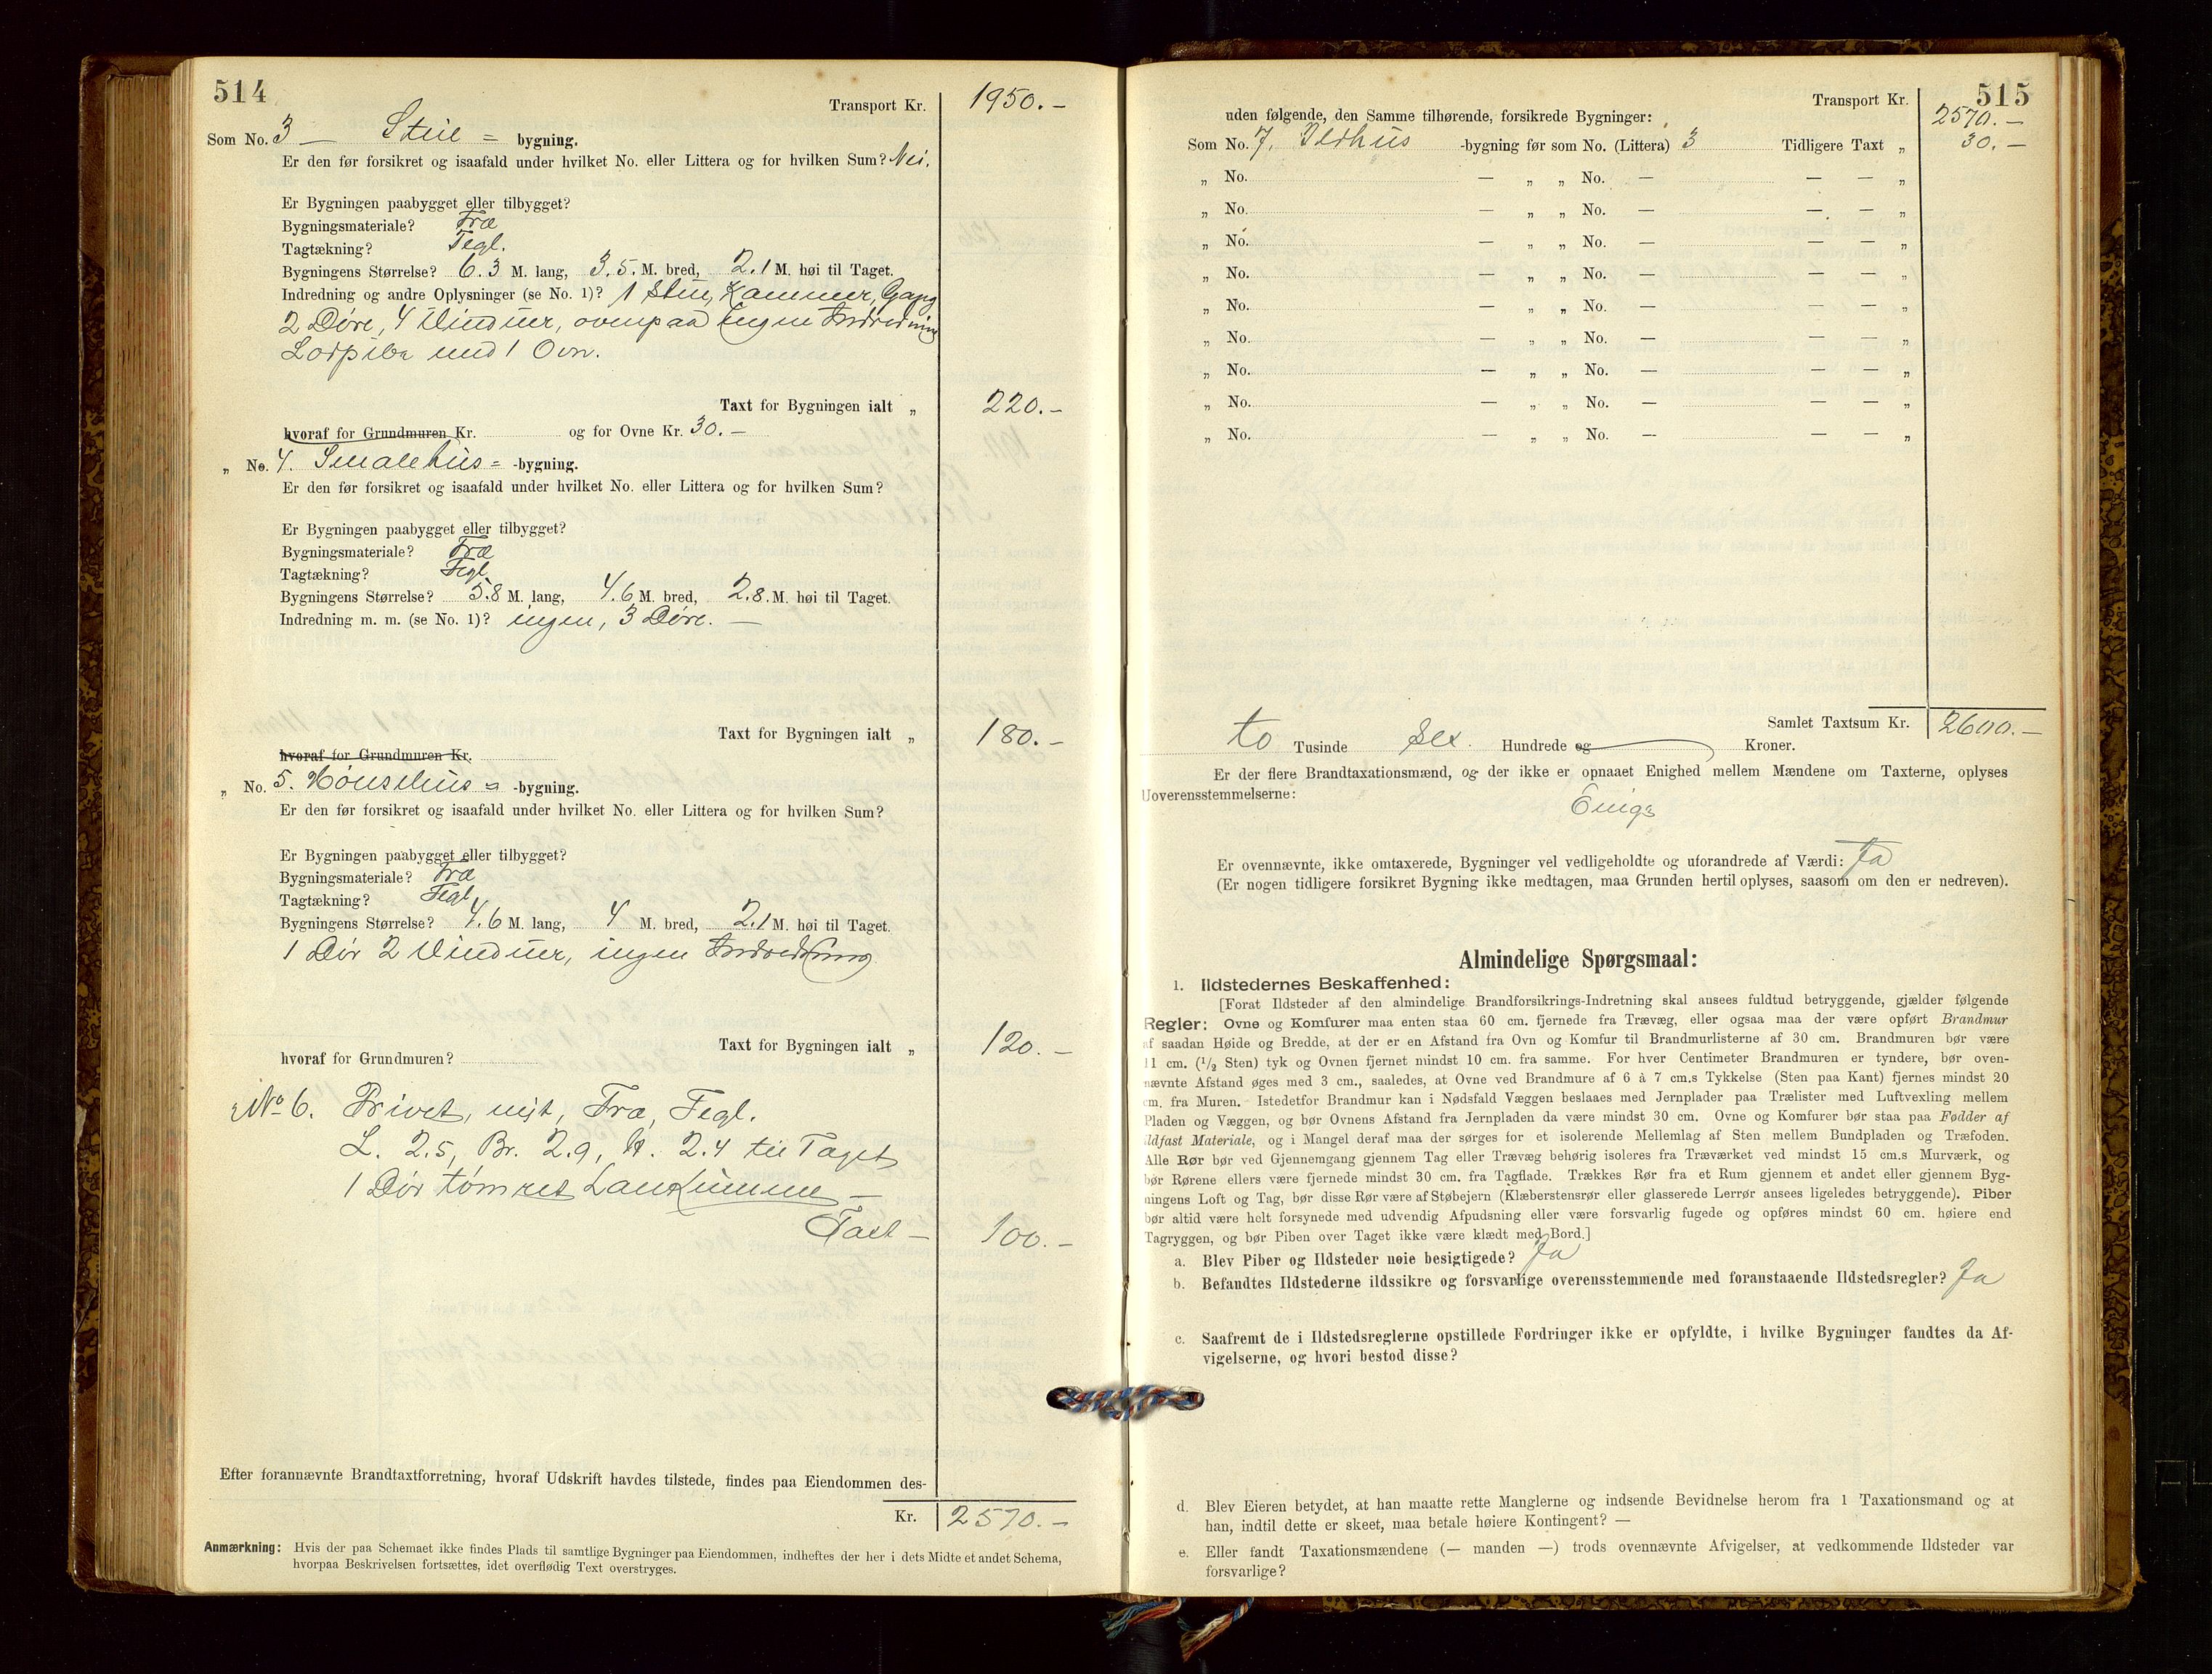 514
Transport Kr. 1950.-
Som No. 3 - Stue = bygning.
Er den før forsikret og isaafald under hvilket No. eller Littera og for hvilken Sum? Nei.
Er Bygningen paabygget eller tilbygget?
Bygningsmateriale? Træ
Tagtækning? Tegl.
Bygningens Størrelse? 6.3 M. lang, 3.5. M. bred, 2.1 M. høi til Taget.
Indredning og andre Oplysninger (se No. 1)? 1 Stue, Kammer, Gang
2 Døre, 4 Vinduer, ovenpaa ingen Indredning
med 1 Ovn.
Taxt for Bygningen ialt „ 220.-
hvoraf for Grundmuren Kr. og for Ovne Kr. 30.-
„ No. 4. Smalehus = -bygning.
Er den før forsikret og isaafald under hvilket No. eller Littera og for hvilken Sum?
Er Bygningen paabygget eller tilbygget?
Bygningsmateriale? Træ
Tagtækning? Tegl
Bygningens Størrelse? 5.8 M. lang, 4.6 M. bred, 2.8. M. høi til Taget.
Indredning m. m. (se No. 1)? ingen, 3 Døre. -
Taxt for Bygningen ialt „ 180.-
hvoraf for Grundmuren Kr.
„ No. 5. Hønsehus = -bygning.
Er den før forsikret og isaafald under hvilket No. eller Littera og for hvilken Sum?
Er Bygningen paabygget eller tilbygget?
Bygningsmateriale? Træ
Tagtækning? Tegl
Bygningens Størrelse? 4.6 M. lang, 4 M. bred, 2.1 M. høi til Taget.
1 Dør 2 Vinduer, ingen Indredning
Taxt for Bygningen ialt „ 120.-
hvoraf for Grundmuren?
No 6. Privet, nyt, Træ, Tegl.
L. 2.5, Br. 2.9, H. 2.4 til Taget
1 Dør tømret
Taxt - 100.-
Efter forannævnte Brandtaxtforretning, hvoraf Udskrift havdes tilstede, findes paa Eiendommen des-
Kr. 2570.-
Anmærkning: Hvis der paa Schemaet ikke findes Plads til samtlige Bygninger paa Eiendommen, indheftes der her i dets Midte et andet Schema,
hvorpaa Beskrivelsen fortsættes, idet overflødig Text overstryges.
515
Transport Kr. 2570.-
uden følgende, den Samme tilhørende, forsikrede Bygninger:
Som No. 7. Ildhus -bygning før som No. (Littera) 3 Tidligere Taxt „ 30.-
„ No. — „ „ No. — — — „
„ No. — „ „ No. — — — „
„ No. — „ „ No. — — — „
„ No. — „ „ No. — — — „
„ No. — „ „ No. — — — „
„ No. — „ „ No. — — — „
„ No. — „ „ No. — — — „
„ No. — „ „ No. — — — „
„ No. — „ „ No. — — — „
Samlet Taxtsum Kr. 2600.-
to Tusinde sex. Hundrede og Kroner.
Er der flere Brandtaxationsmænd, og der ikke er opnaaet Enighed mellem Mændene om Taxterne, oplyses
Uoverensstemmelserne:
Enige
Er ovennævnte, ikke omtaxerede, Bygninger vel vedligeholdte og uforandrede af Værdi: Ja
(Er nogen tidligere forsikret Bygning ikke medtagen, maa Grunden hertil oplyses, saasom om den er nedreven).
Almindelige Spørgsmaal:
1. Ildstedernes Beskaffenhed:
[Forat Ildsteder af den almindelige Brandforsikrings-Indretning skal ansees fuldtud betryggende, gjælder følgende
Regler: Ovne og Komfurer maa enten staa 60 cm. fjernede fra Trævæg, eller ogsaa maa der være opført Brandmur
af saadan Høide og Bredde, at der er en Afstand fra Ovn og Komfur til Brandmurlisterne af 30 cm. Brandmuren bør være
11 cm. (1/2 Sten) tyk og Ovnen fjernet mindst 10 cm. fra samme. For hver Centimeter Brandmuren er tyndere, bør oven-
nævnte Afstand øges med 3 cm., saaledes, at Ovne ved Brandmure af 6 à 7 cm.s Tykkelse (Sten paa Kant) fjernes mindst 20
cm. fra Muren. Istedetfor Brandmur kan i Nødsfald Væggen beslaaes med Jernplader paa Trælister med Luftvexling mellem
Pladen og Væggen, og bør Ovnens Afstand fra Jernpladen da være mindst 30 cm. Ovne og Komfurer bør staa paa Fødder af
ildfast Materiale, og i Mangel deraf maa der sørges for et isolerende Mellemlag af Sten mellem Bundpladen og Træfoden.
Alle Rør bør ved Gjennemgang gjennem Tag eller Trævæg behørig isoleres fra Træværket ved mindst 15 cm.s Murværk, og
bør Rørene ellers være fjernede mindst 30 cm. fra Tagflade. Trækkes Rør fra et Rum gjennem et andet eller gjennem Byg-
ningens Loft og Tag, bør disse Rør være af Støbejern (Klæberstensrør eller glasserede Lerrør ansees ligeledes betryggende). Piber
bør altid være helt forsynede med udvendig Afpudsning eller være forsvarlig fugede og opføres mindst 60 cm. høiere end
Tagryggen, og bør Piben over Taget ikke være klædt med Bord.]
a. Blev Piber og Ildsteder nøie besigtigede? Ja
b. Befandtes Ildstederne ildssikre og forsvarlige overensstemmende med foranstaaende Ildstedsregler? Ja
c. Saafremt de i Ildstedsreglerne opstillede Fordringer ikke er opfyldte, i hvilke Bygninger fandtes da Af-
vigelserne, og hvori bestod disse?
d. Blev Eieren betydet, at han maatte rette Manglerne og indsende Bevidnelse herom fra 1 Taxationsmand og at
han, indtil dette er skeet, maa betale høiere Kontingent? —
e. Eller fandt Taxationsmændene (— manden —) trods ovennævnte Afvigelser, at vedkommende Ildsteder var
forsvarlige?